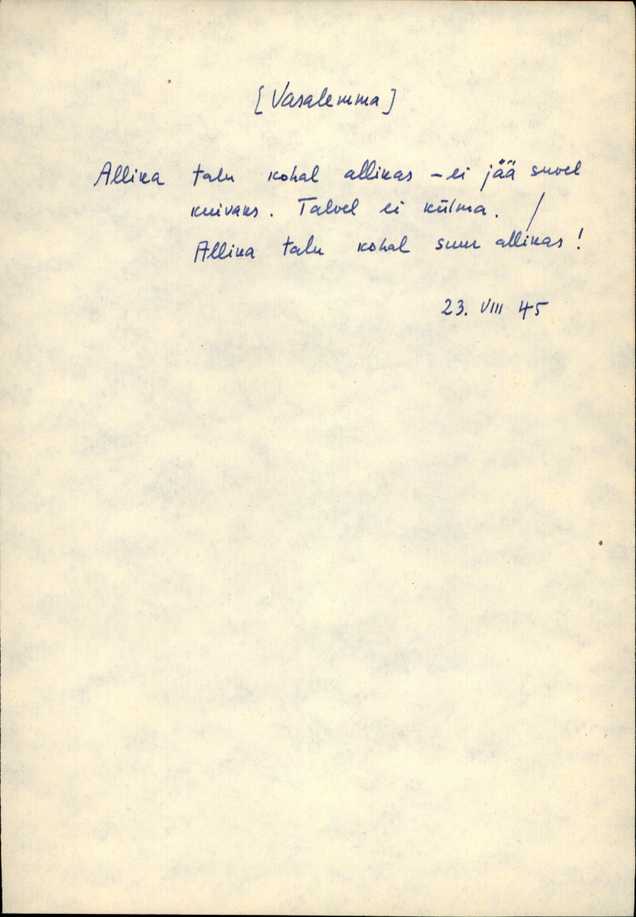 [Vasalemma]
Allika talu kohal allikas – ei jää suvel
kuivaks. Talvel ei külma.
Allika talu kohal suur allikas!
23. VIII 45